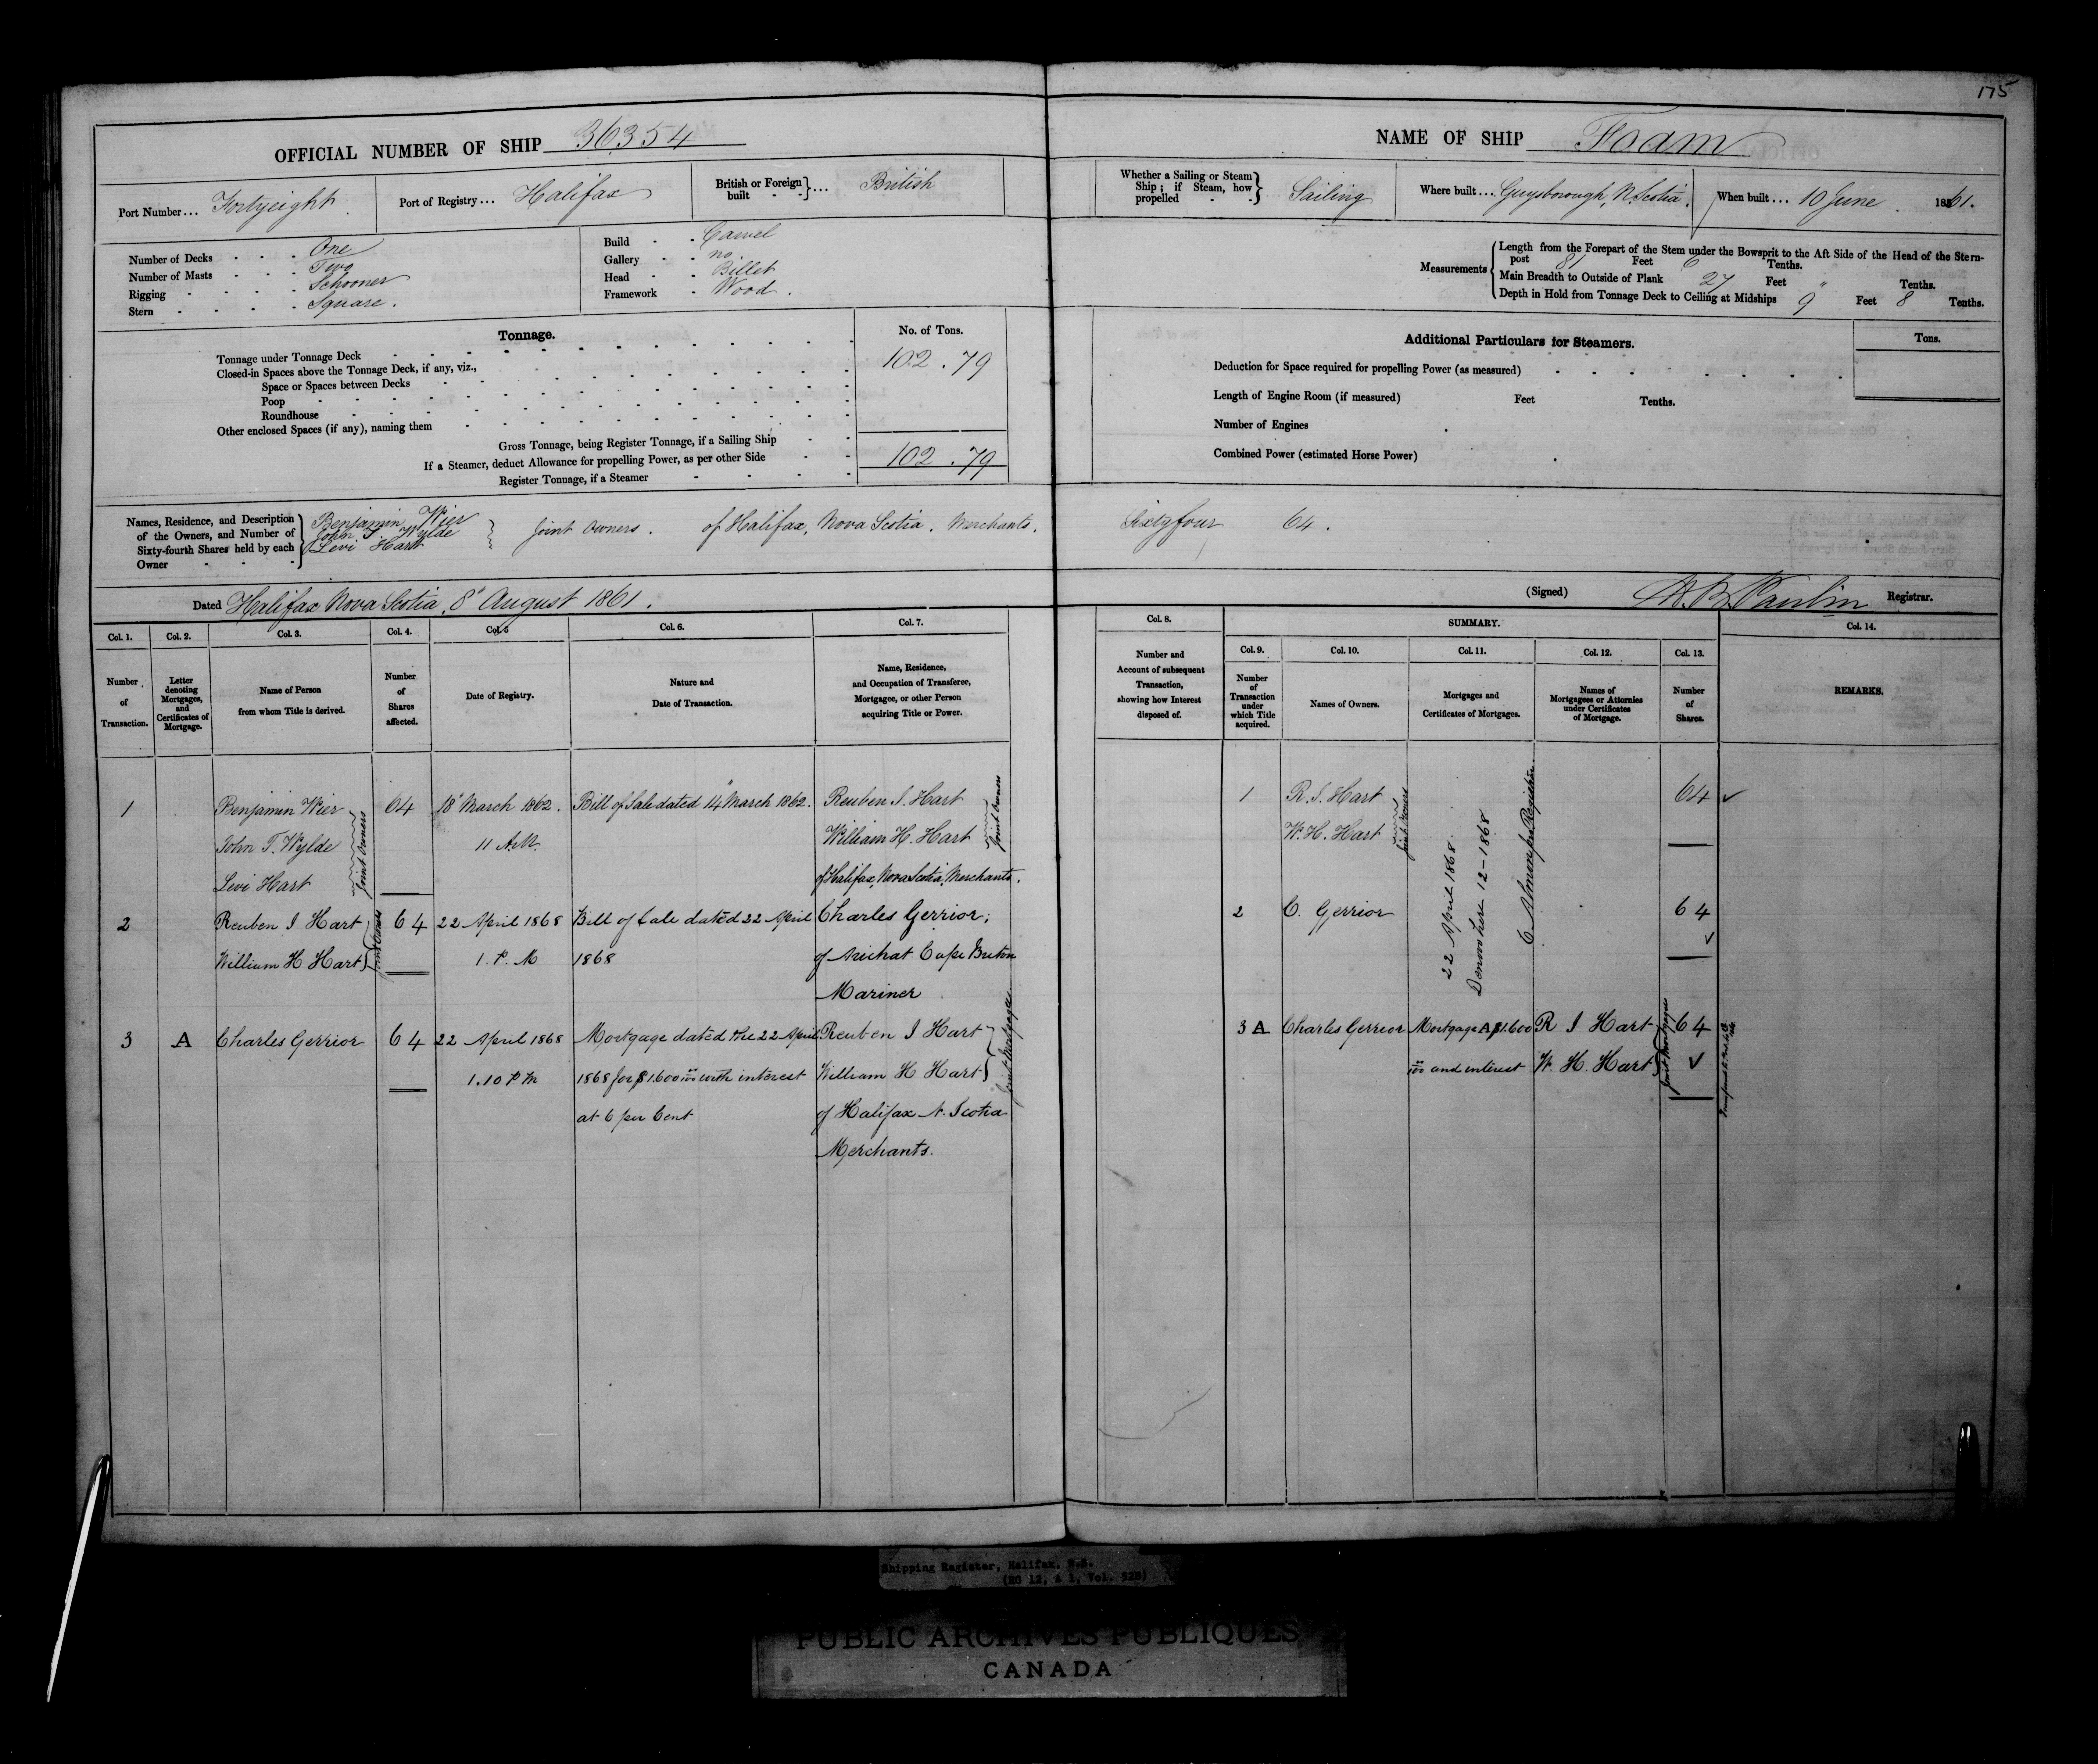 175
OFFICIAL NUMBER OF SHIP 36354
NAME OF SHIP Foam
Port Number... Fortyeight
Port of Registry... Halifax
British or Foreign built } ... British
Whether a Sailing or Steam Ship; if Steam, how propelled } Sailing
Where built... Guysborough, N. Scotia.
When built... 10 June 1861.
Number of Decks One
Number of Masts Two
Rigging Schooner
Stern Square.
Build Carvel
Gallery no
Head Billet
Framework Wood.
Measurements
Length from the Forepart of the Stem under the Bowsprit to the Aft Side of the Head of the Stern-
post 81 Feet 6 Tenths.
Main Breadth to Outside of Plank 27 Feet " Tenths.
Depth in Hold from Tonnage Deck to Ceiling at Midships 9 Feet 8 Tenths.
Tonnage.
No. of Tons.
Tonnage under Tonnage Deck 102.79
Closed-in Spaces above the Tonnage Deck, if any, viz.,
Space or Spaces between Decks
Poop
Roundhouse
Other enclosed Spaces (if any), naming them
Gross Tonnage, being Register Tonnage, if a Sailing Ship
If a Steamer, deduct Allowance for propelling Power, as per other Side 102.79
Register Tonnage, if a Steamer
Additional Particulars for Steamers.
Tons.
Deduction for Space required for propelling Power (as measured)
Length of Engine Room (if measured) Feet Tenths.
Number of Engines
Combined Power (estimated Horse Power)
Names, Residence, and Description of the Owners, and Number of Sixty-fourth Shares held by each Owner
Benjamin Wier
John T. Wylde
Levi Hart
} Joint Owners. of Halifax, Nova Scotia, Merchants. Sixtyfour 64.
Dated Halifax Nova Scotia, 8" August 1861.
(Signed) Registrar.
Col. 1. Col. 2. Col. 3. Col. 4. Col. 5 Col. 6. Col. 7.
Number of Transaction.
Letter denoting Mortgages, and Certificates of Mortgage.
Name of Person from whom Title is derived.
Number of Shares affected.
Date of Registry.
Nature and Date of Transaction.
Name, Residence, and Occupation of Transferee, Mortgagee, or other Person acquiring Title or Power.
Col. 8. SUMMARY. Col. 14.
Col. 9. Col. 10. Col. 11. Col. 12. Col. 13.
Number and Account of subsequent Transaction, showing how Interest disposed of.
Number of Transaction under which Title acquired.
Names of Owners.
Mortgages and Certificates of Mortgages.
Names of Mortgagees or Attornies under Certificates of Mortgage.
Number of Shares.
REMARKS.
1 Benjamin Wier 64 18" March 1862. Bill of Sale dated 14" March 1862. Reuben I. Hart
John T. Wylde 11 A.M. William H. Hart
Levi Hart of Halifax, Nova Scotia, Merchants.
Joint Owners
Joint Owners
2 Reuben I Hart 64 22 April 1868 Bill of Sale dated 22 April Charles Gerrior,
William H Hart 1. P. M 1868 of Arichat Cape Breton
Mariner
Joint Owners
3 A Charles Gerrior 64 22 April 1868 Mortgage dated the 22 April Reuben I Hart
1.10 P M 1868 for $1.600 with interest William H Hart
at 6 per Cent of Halifax N. Scotia
Merchants.
Joint Mortgagees
1 R. I. Hart 64
W. H. Hart
Joint Owners
2 C. Gerrior 64
22 April 1868
Denovo here 12-1868
3 A Charles Gerrior Mortgage A $1.600 R I Hart 64
and interest W. H. Hart
Joint Mortgagees
Shipping Register, Halifax, N.S.
(RG 12, A 1, Vol. 528)
PUBLIC ARCHIVES PUBLIQUES
CANADA